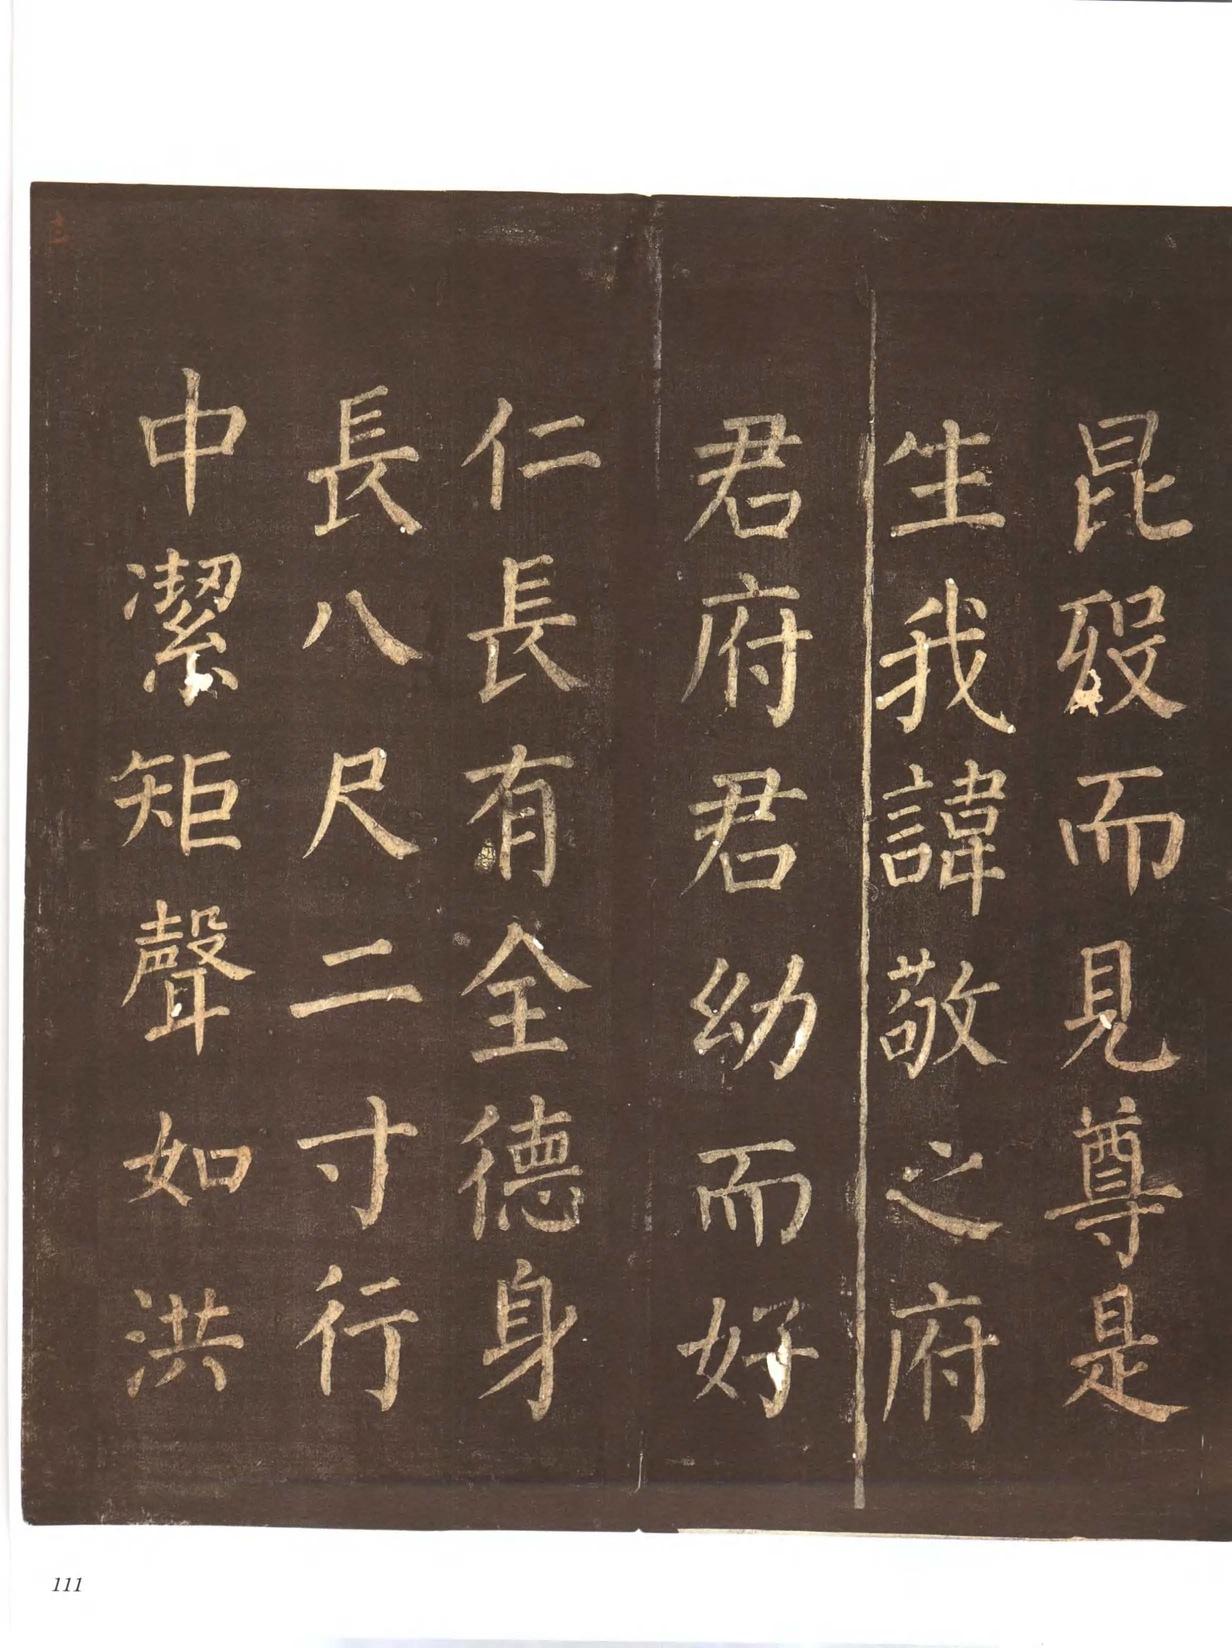 昆歿而見尊是
生我諱敬之府
君府君幼而好
仁長有全德身
長八尺二寸行
中潔矩聲如洪
111